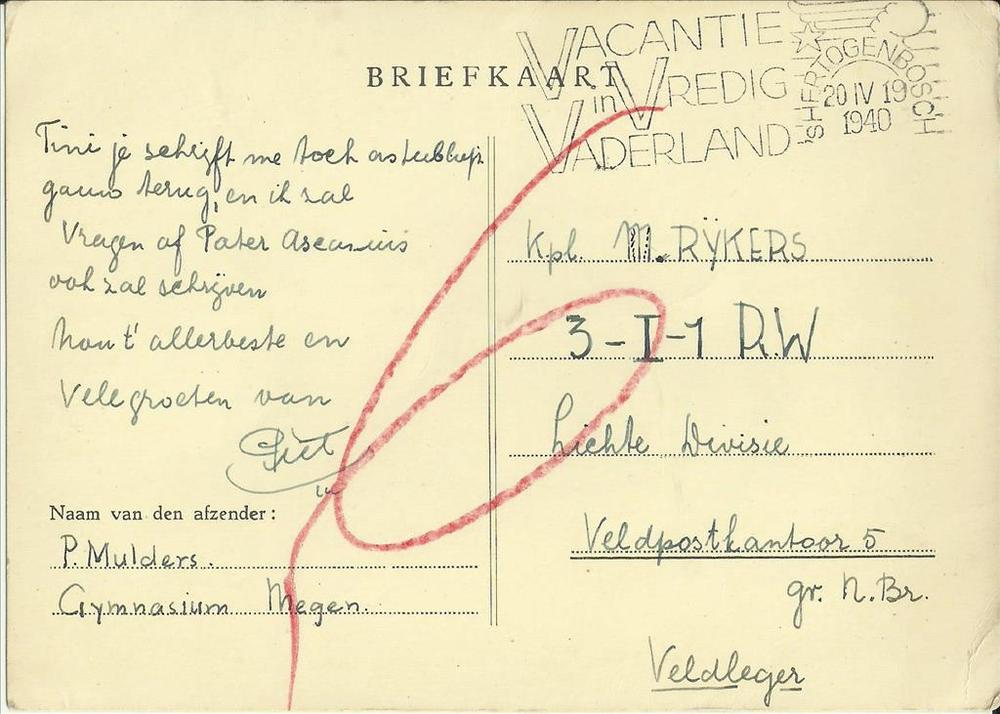 BRIEFKAART
VACANTIE
in VREDIG
VADERLAND
'S HERTOGENBOSCH
20 IV 19
1940
Tini je schrijft me toch astublijft
gauw terug, en ik zal
Vragen of Pater Ascanius
ook zal schrijven
nou t' allerbeste en
Vele groeten van
Piet
Naam van den afzender:
P. Mulders.
Gymnasium Megen.
Kpl. M. RYKERS
3-I-1 R.W
Lichte Divisie
Veldpostkantoor 5
gr. N.Br.
Veldleger